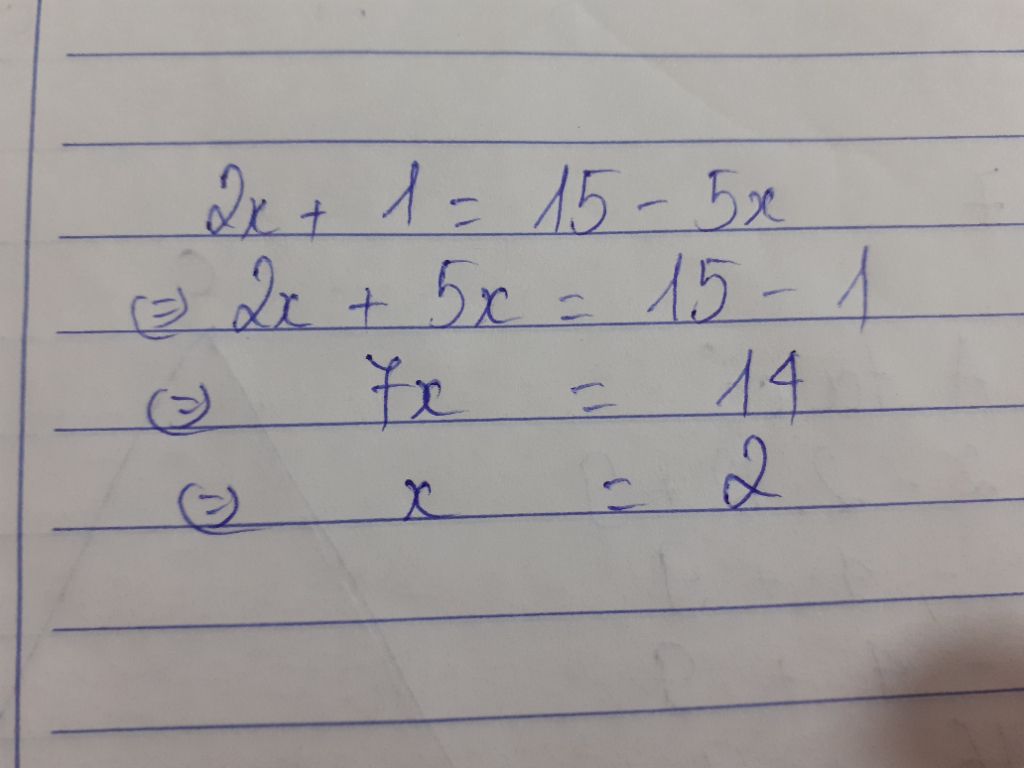 2x + 1 = 15 - 5x
⇔ 2x + 5x = 15 - 1
⇔ 7x = 14
⇔ x = 2